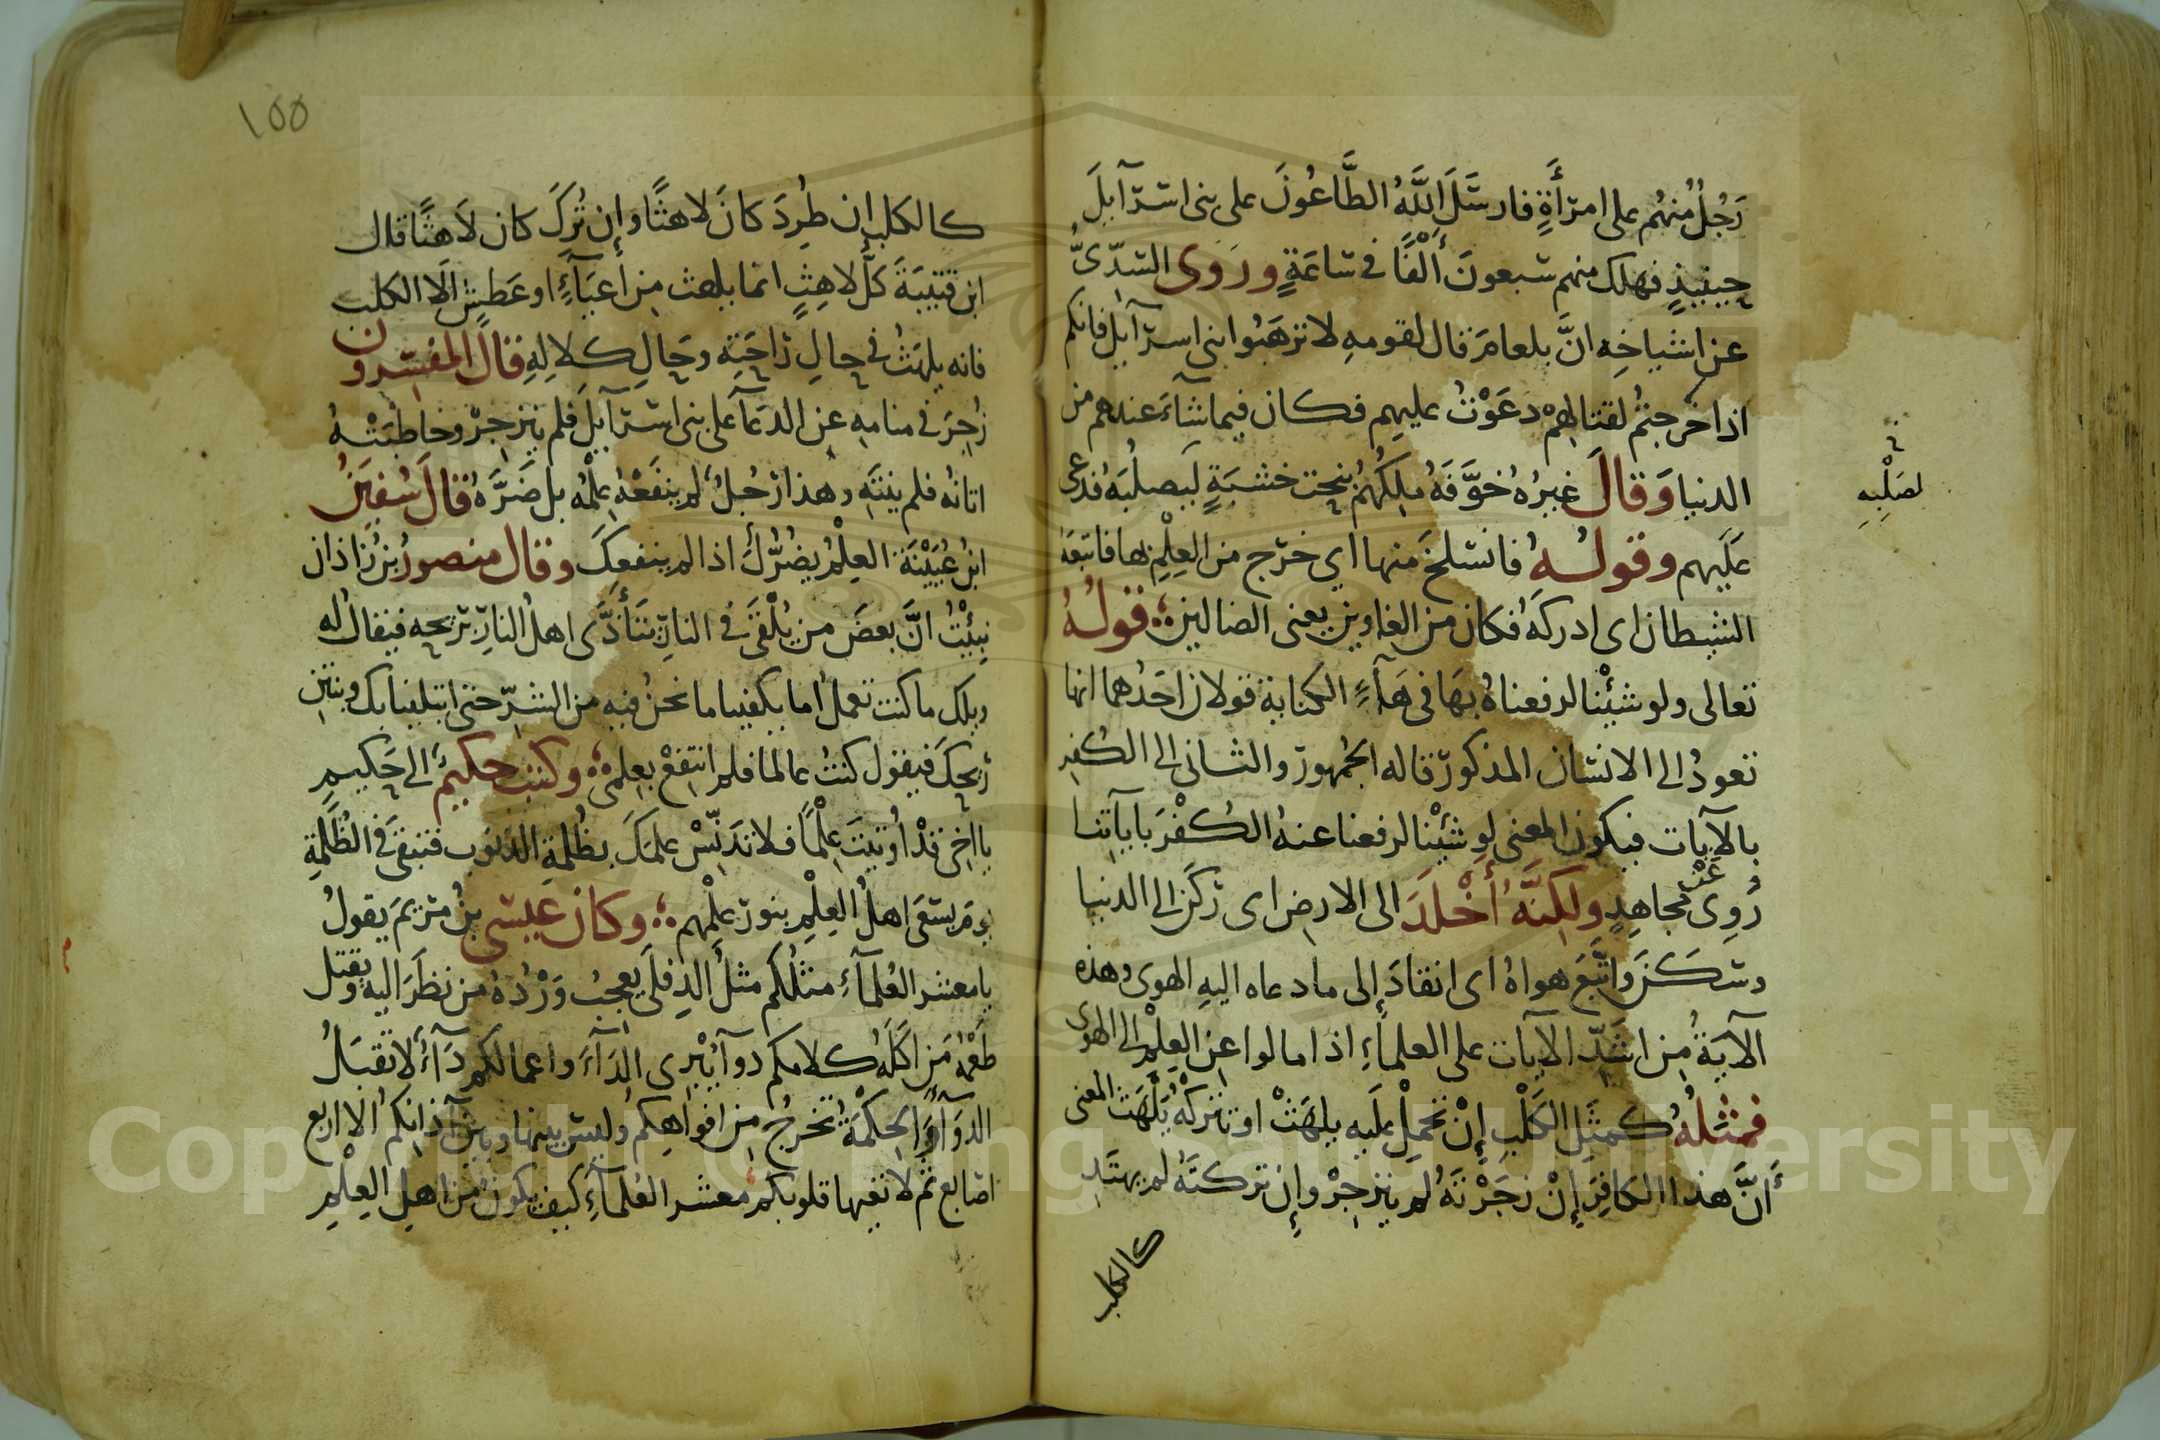 رَجُلٌ مِنهُم على امرَأَةٍ فارسَلَ اللَّهُ الطَّاعُونَ على بنى اسرآيلَ
حينيذٍ فهلك منهم سبعونَ أَلْفًا فى ساعَةٍ وروى السّدّىُّ
عن اشياخِه انَّ بلعامَ قال لقومهِ لا ترهَبُوا بنى اسرآيل فانكم
اذا خرجتُم لقتالِهمْ دعَوْتُ عليهِم فكان فيما شآءَ عندهم من
الدنيا وَقالَ غيرُهُ خوَّفَهُ ملِكُهُمْ بنحت خشبَةٍ ليصلُبَهُ فدعى
لصَلْبِهِ
عَلَيهم وقولـهُ فانسلخَ منها اي خرَج من العِلْمِ بها فاتبعَهُ
الشيطان اى ادركَهُ فكان من الغاوين يعنى الضالين قولُهُ
تعالى ولو شيْنا لرفعناهُ بهَا فى هآءِ الكنايةِ قولان احَدُهما انها
تعودُ الى الانسان المذكور قاله الجُمهور والثانى الى الكُفرِ
بالآيات فيكون المعنى لو شيْنا لرفعنا عنهُ الكُفْرَ باياتِنا
رُوِىَ عَنْ مجاهِدٍ ولكِنَّهُ أَخْلَدَ الى الارضِ اى ركَنَ الى الدنيا
وسَكَنَ واتَّبَعَ هواهُ اى انقادَ إلى ما دعاه اليهِ الهوى وهذه
الآيَةُ مِن اشَدِّ الآيات على العلمآءِ اذا مالوا عنِ العِلْمِ الى الهوى
فمثلُهُ كمثَلِ الكَلْبِ إِنْ تحمِلْ عليهِ يلهَثْ او تتركْهُ يَلْهَث المعنى
أَنَّ هذا الكافِرَ إِنْ زجَرْتَهُ لم ينزجِرْ وإن تركتَهُ لم يهتَدِ
كالكلب
١٥٥
كالكلب ان طُرِدَ كانَ لاهثًا وإن تُرِكَ كان لَاهثًا قال
ابن قتيبَةَ كلُّ لاهِثٍ انما يلهث مِن أعيَآءٍ او عَطشٍ الّا الكلب
فانه يلهَثُ فى حالِ راحَتِه وحَالِ كلالِهِ قالَ المفسّرون
زُجِرَ فى منامِهِ عن الدعَآ على بنى اسرَآيلَ فلم ينزجِرْ وخاطبَتْهُ
اتانُه فلم ينتَهِ وهذا رَجُلٌ لم ينفَعْهُ عِلْمُه بل ضَرَّهُ قالَ سُفيَنُ
ابنُ عُيَيْنَةَ العِلْمُ يضُرُّكَ اذا لم ينفعكَ وقال منصورُ بنُ زاذان
نبِيْتُ انَّ بعضَ من يُلْقَى فى النارِ يتَأَذَّى اهلُ النارِ بريحه فيقال له
ويلك ما كنت تعملُ اما يكفينا ما نحنُ فيه من الشرّ حتى ابتلينا بك وبنتنِ
ريحكَ فيقول كنتُ عالما فلم انتفعْ بعِلمى وكتب حكيمٌ الى حَكيمٍ
يا اخى قدْ اُوتيتَ عِلْمًا فلا تدَنّسْ علمَكَ بظُلمةِ الذنوب فتبقى فى الظُّلمةِ
يومَ يسعَى اهلُ العِلْمِ بنور علْمِهم وكان عيسى بنُ مريمَ يقولُ
يا معشر العُلمآءِ مثلُكم مثلُ الدِفلَى يعجِبُ وَرْدُهُ من نظرَ اليهِ ويقتل
طَعْمُهُ مَن اكَلَهُ كلامكم دوآ يُبْرِى الدآءَ واعمالكم دَآءٌ لا تقبَلُ
الدوَآءَ والحِكْمَةُ تخرجُ مِن افواهِكم وليس بينها وبينَ آذانِكم الا اربع
اصابع ثم لا تعيها قلوبكم معشر العُلمآءِ كيف يكونُ من اهلِ العِلْمِ